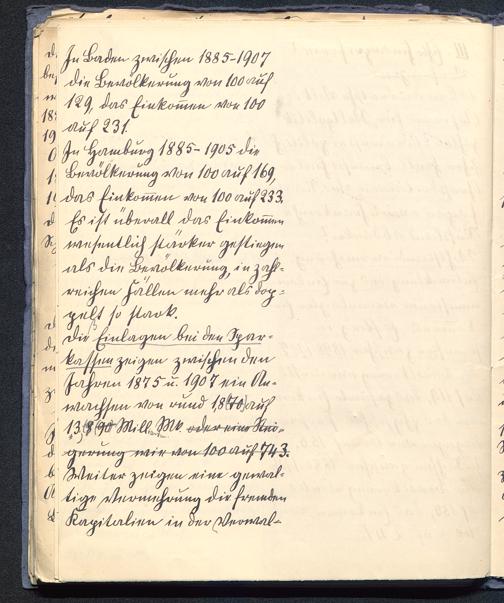 In Baden zwischen 1885-1907
die Bevölkerung von 100 auf
129, das Einkom̅en von 100
auf 231.
In Hamburg 1885-1905 die
Bevölkerung von 100 auf 169,
das Einkom̅en von 100 auf 233.
Es ist überall das Einkom̅en
wesentlich stärker gestiegen
als die Bevölkerung, in zahl-
reichen Fällen mehr als dop-
pelt so stark.
Die Einlagen bei den Spar-
kassen zeigen zwischen den
Jahren 1875 u. 1907 ein An-
wachsen von rund 1,870 auf
13,890 Mill. Mk oder eine Stei-
gerung wie von 100 auf 743.
Weiter zeigen eine gewal-
tige Vermehrung die fremden
Kapitalien in der Verwal-